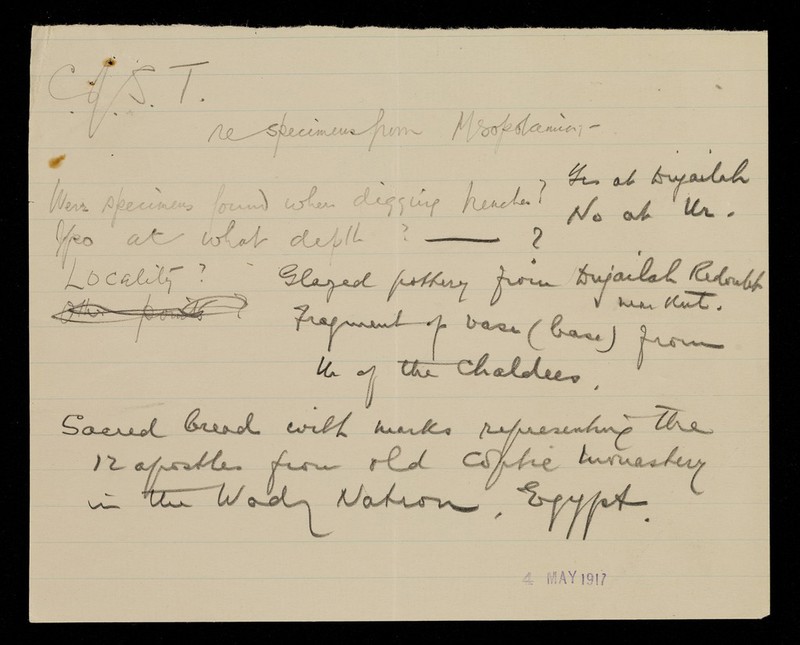 C. of S. T.
re specimens from Mesopotamia:-
Were specimens found when digging trenches? Yes at Dujailah
No at Ur.
If so at what depth? — ?
Locality? Glazed pottery from Dujailah Redoubt
near Kut.
other points?
Fragment of vase (base) from
Ur of the Chaldees.
Sacred bread with marks representing the
12 apostles from old Coptic monastery
in the Wady Natron, Egypt.
4 MAY 1917